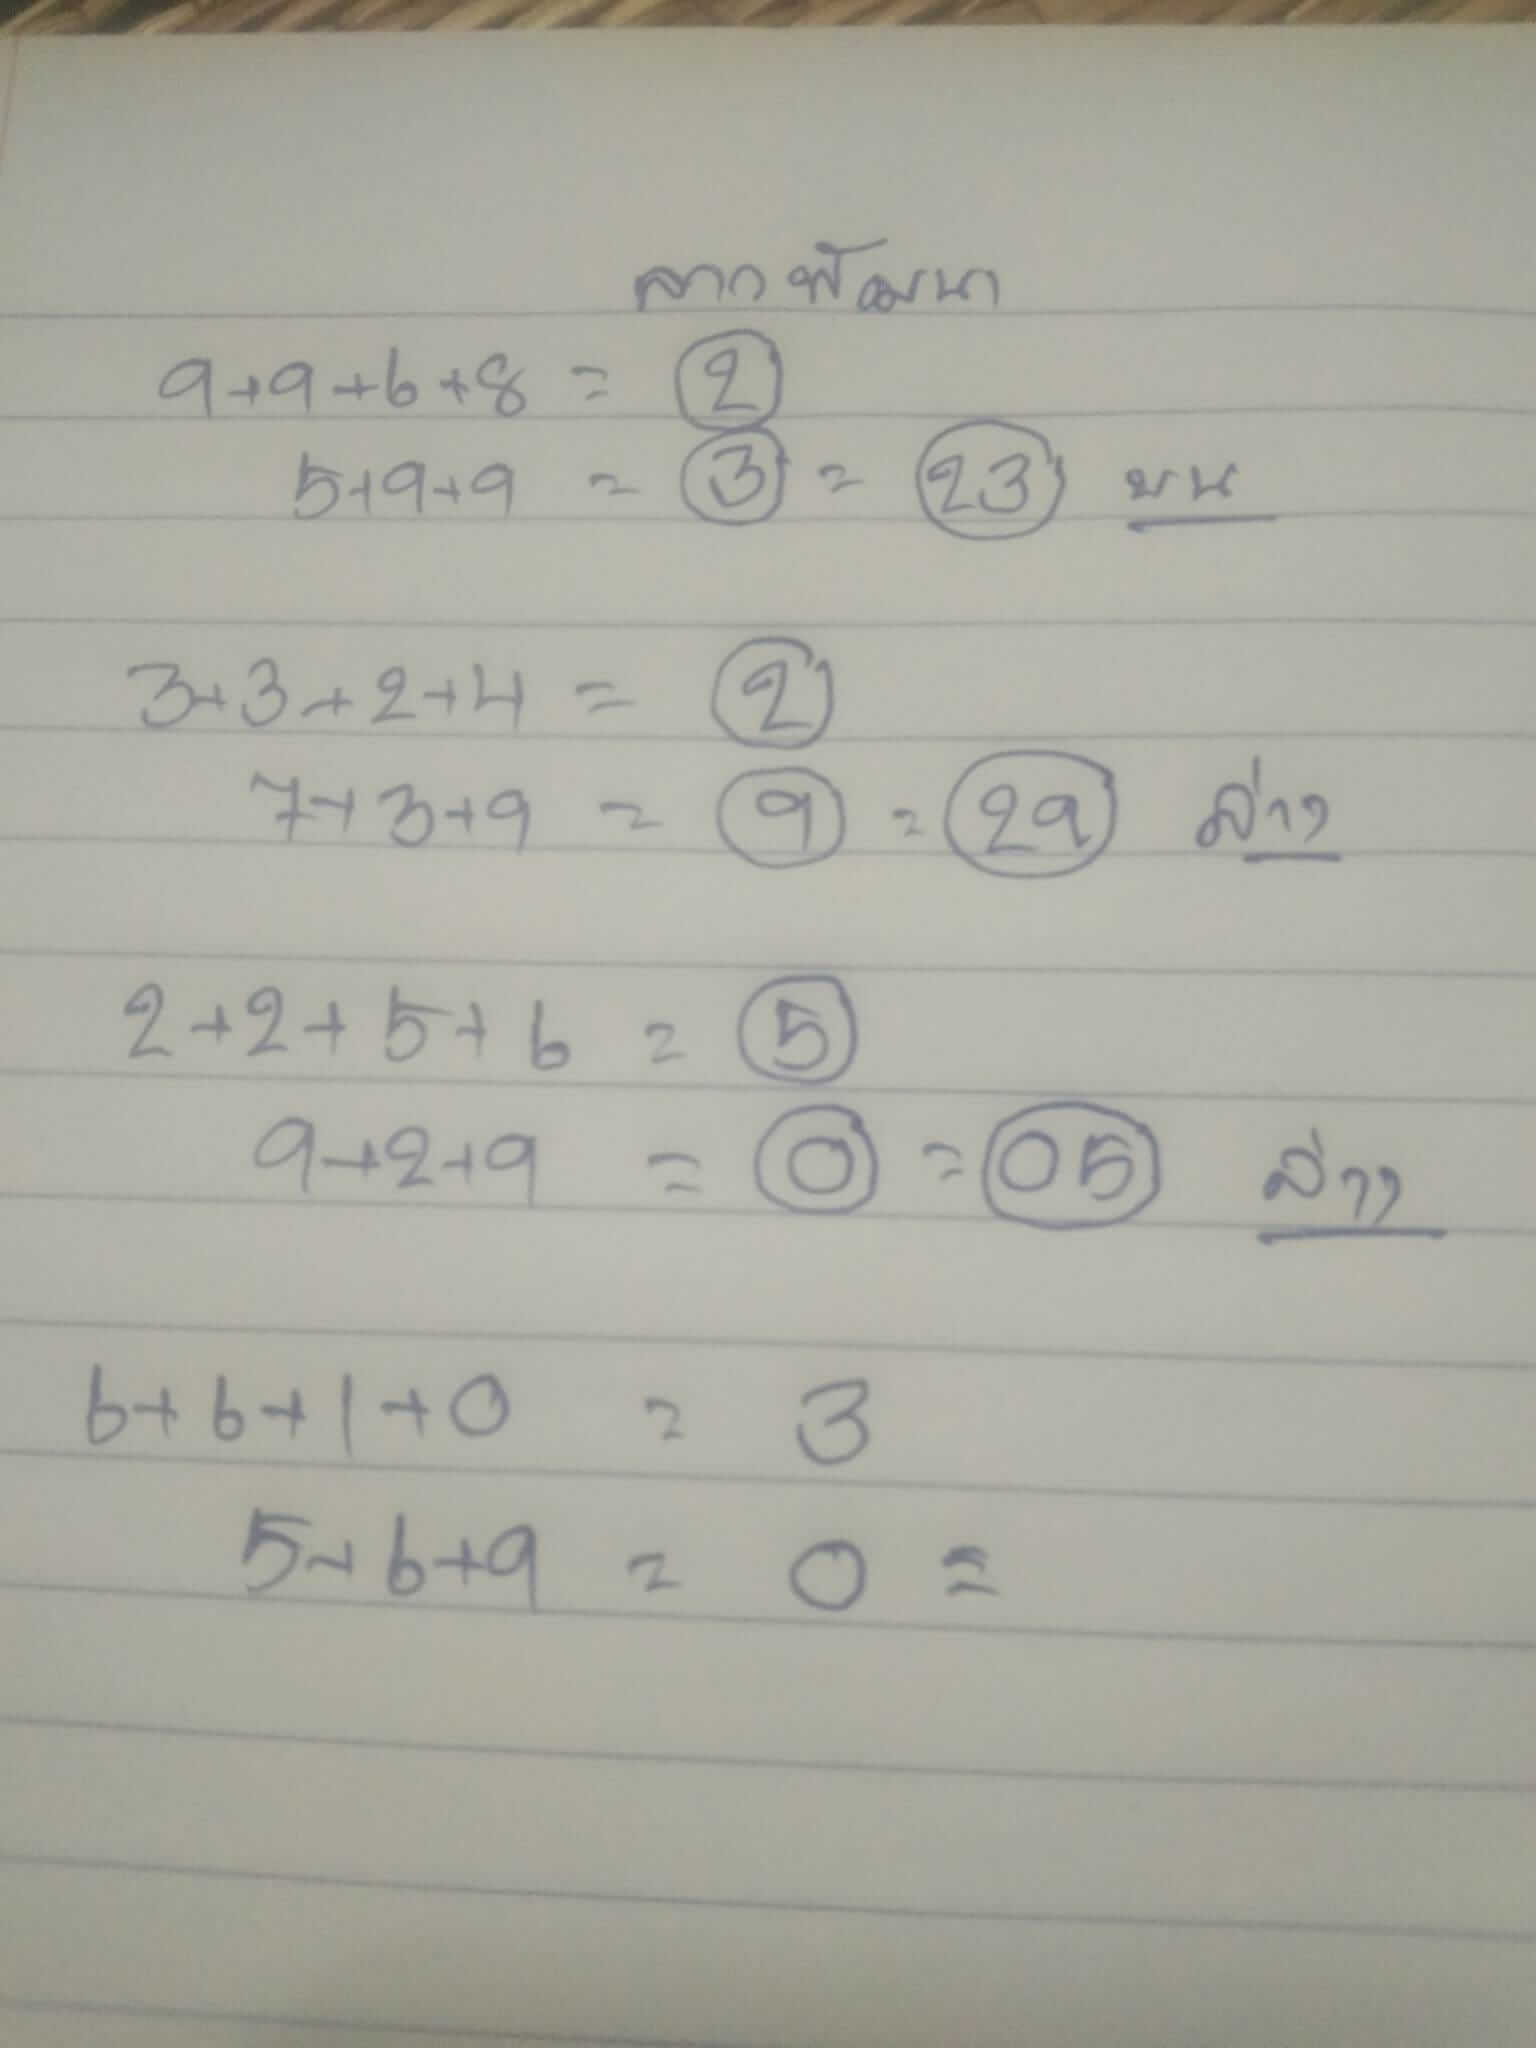 ลาวพัฒนา
9+9+6+8 = 2
5+9+9 = 3 = 23 บน
3+3+2+4 = 2
7+3+9 = 9 = 29 ล่าง
2+2+5+6 = 5
9+2+9 = 0 = 05 ล่าง
6+6+1+0 = 3
5+6+9 = 0 =